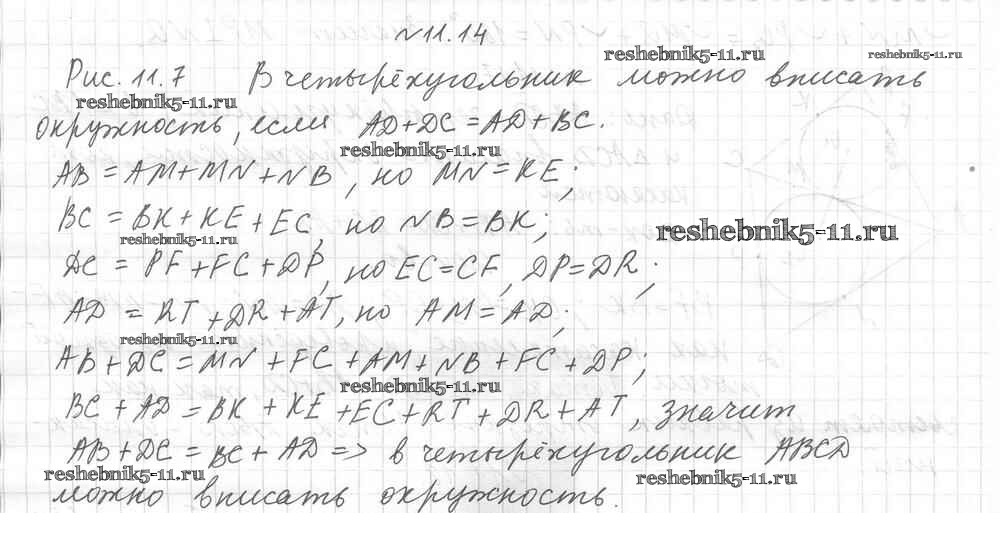 №11.14
reshebnik5-11.ru reshebnik5-11.ru
Рис. 11.7 В четырёхугольник можно вписать
reshebnik5-11.ru
окружность, если AD+DC=AD+BC.
reshebnik5-11.ru
AB=AM+MN+NB, но MN=KE;
BC=BK+KE+EC, но NB=BK;
reshebnik5-11.ru reshebnik5-11.ru
DC=PF+FC+DP, но EC=CF, DP=DR;
AD=RT+DR+AT, но AM=AD;
reshebnik5-11.ru
AB+DC=MN+FC+AM+NB+FC+DP;
reshebnik5-11.ru
BC+AD=BK+KE+EC+RT+DR+AT, значит
AB+DC=BC+AD=> в четырёхугольник ABCD
reshebnik5-11.ru reshebnik5-11.ru
можно вписать окружность.